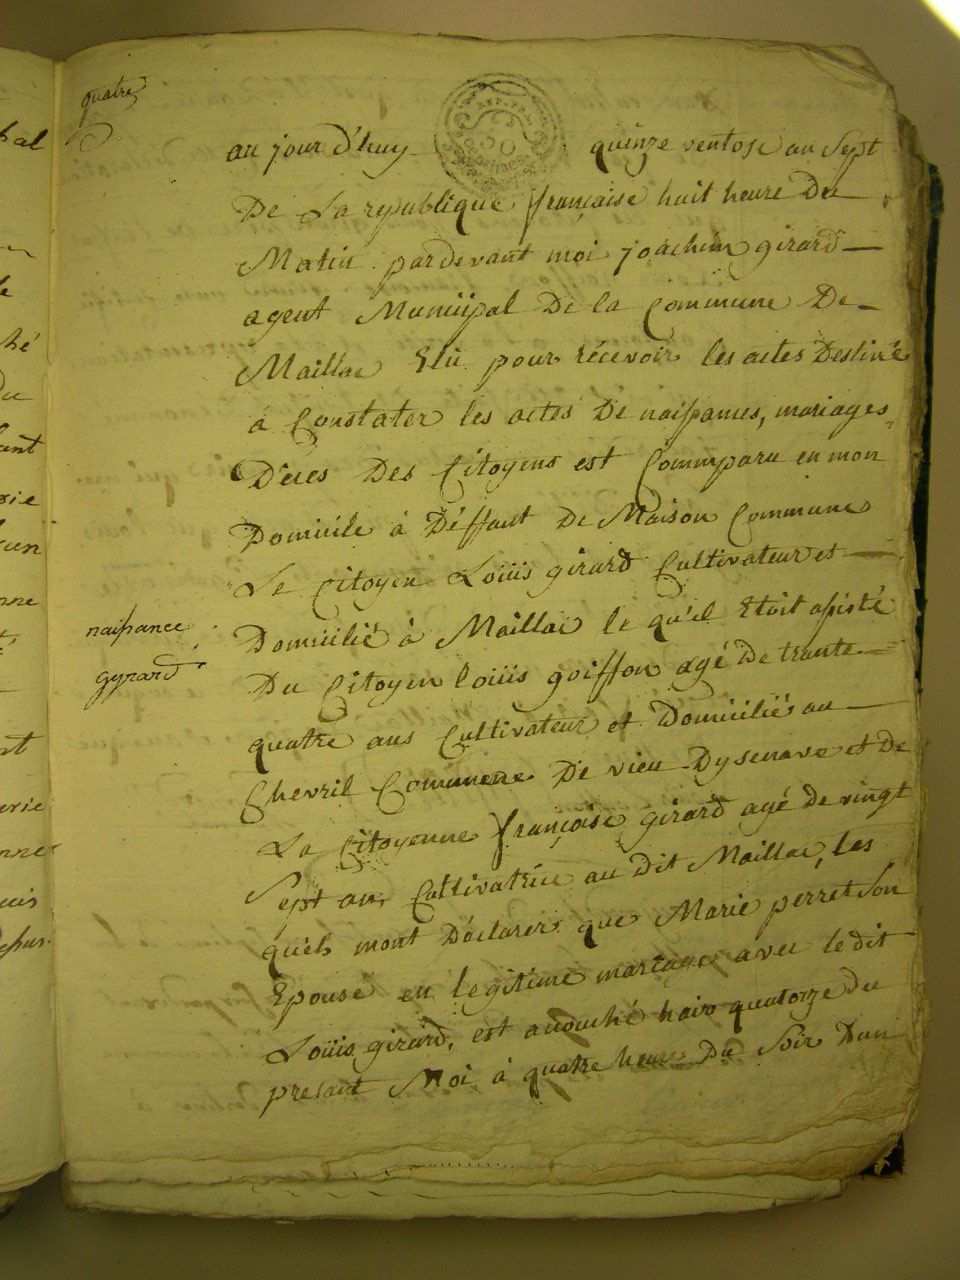 quatre
au jour d'huy quinze ventose an sept
De La republique française huit heure Du
Matin pardevant moi joachim girard
agent Municipal De la Commune De
Maillac Elu pour récevoir les actes Destiné
à Constater les actes De naissances, mariages
Déces Des Citoyens est Commparu en mon
Domicile à Déffaut De Maison Commune
Le Citoyen Loüis girard Cultivateur et
naissance
gyrard
Domicilié à Maillac le qu'el Etoit assisté
Du Citoyen loüis goiffon agé De trante
quatre ans Cultivateur et Domicilié au
Chevril Commune De vieu Dysenave et De
La Citoyenne françoise girard agé de vingt
Sept an Cultivatrice au dit Maillac, les
quels mont Déclarer que Marie perret Son
Epouse en legitime mariage avec le dit
Loüis girard, est acouché hair quatorze du
presant Moi à quatre heure Du Soir Dun